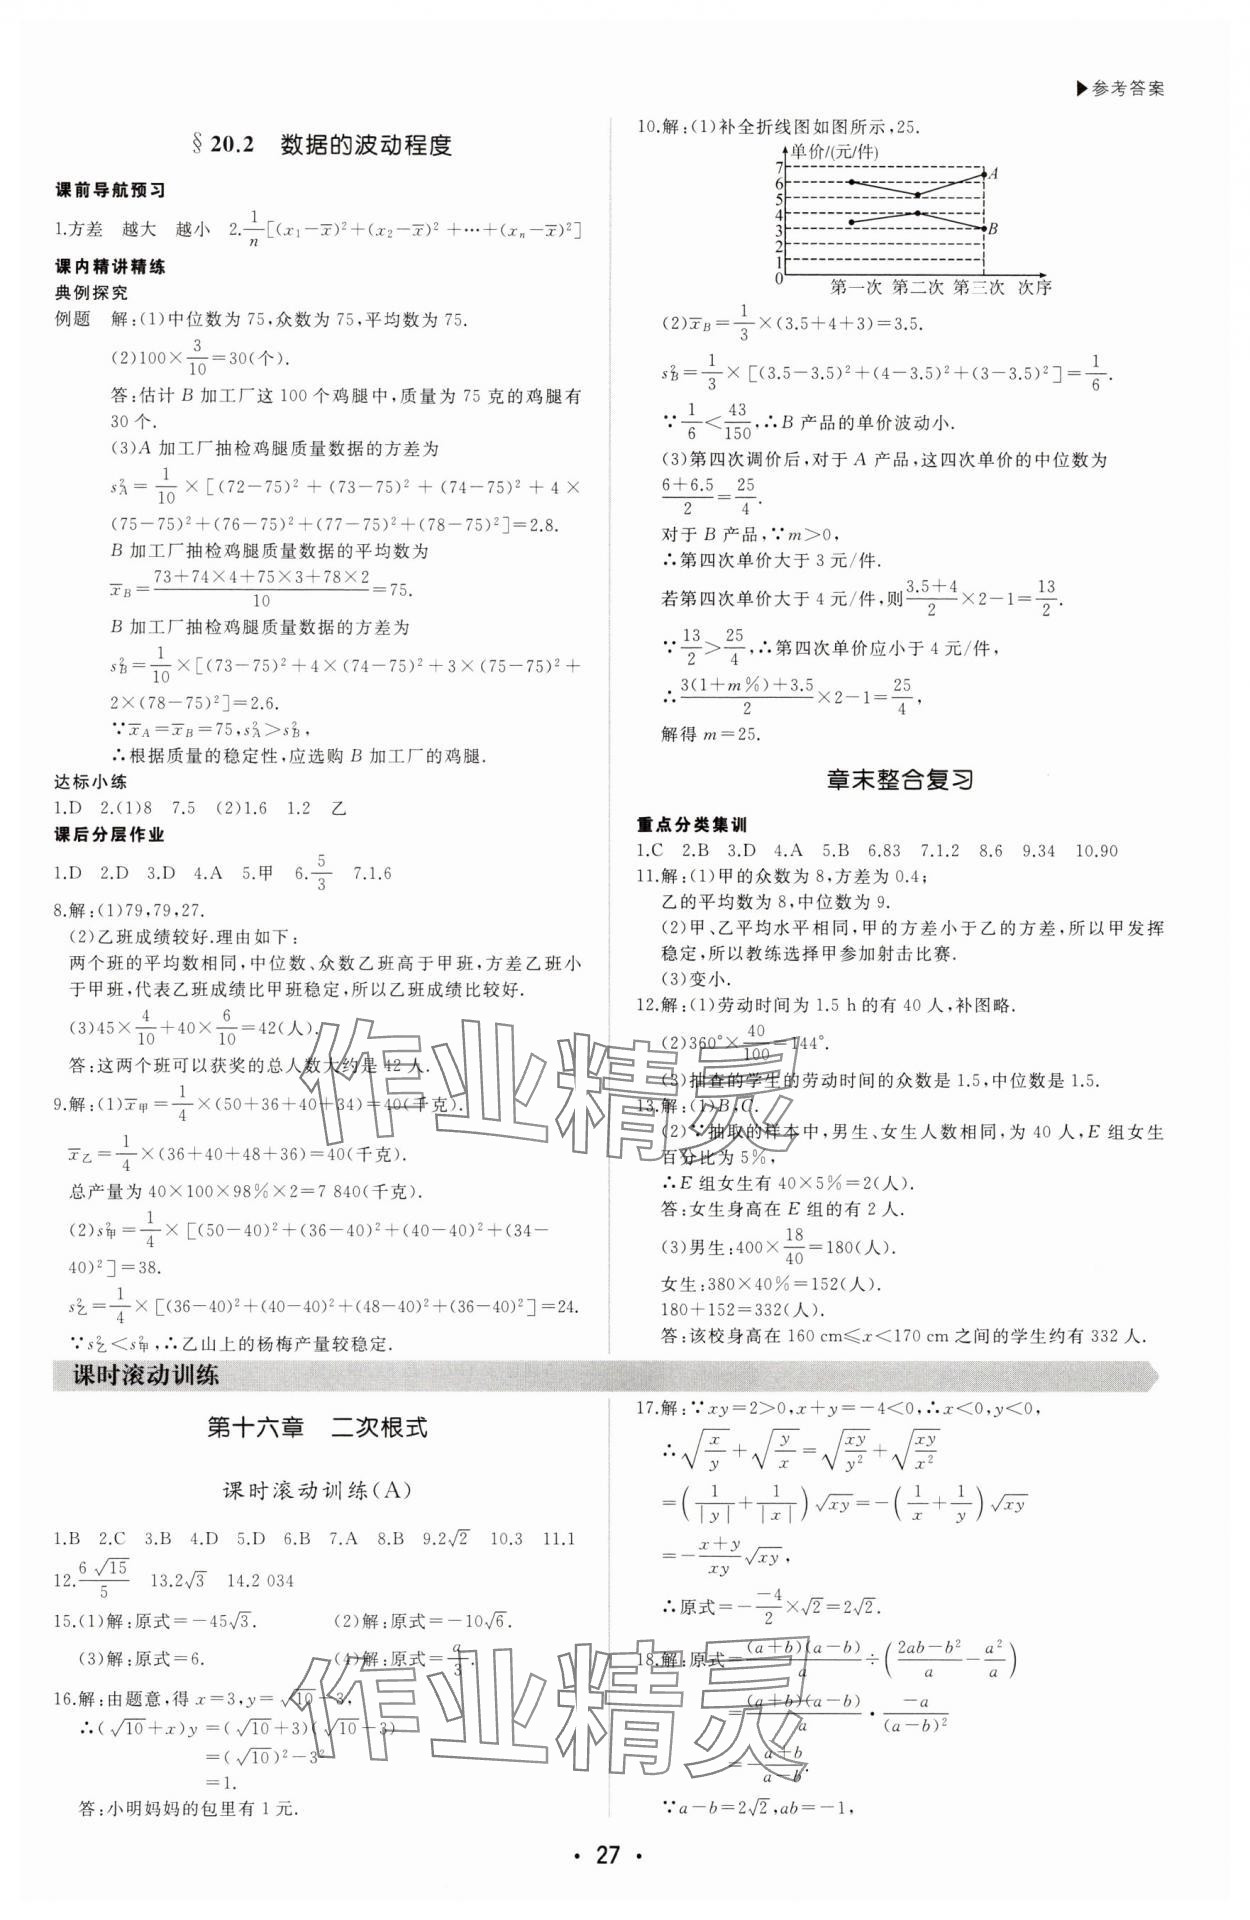 ▶参考答案
§20.2 数据的波动程度
课前导航预习
1.方差 越大 越小 2.\frac{1}{n}[(x₁−x̄)²+(x₂−x̄)²+⋯+(xₙ−x̄)²]
课内精讲精练
典例探究
例题 解:(1)中位数为75,众数为75,平均数为75.
(2)100×\frac{3}{10}=30(个).
答:估计B加工厂这100个鸡腿中,质量为75克的鸡腿有
30个.
(3)A加工厂抽检鸡腿质量数据的方差为
s²_A=\frac{1}{10}×[(72−75)²+(73−75)²+(74−75)²+4×
(75−75)²+(76−75)²+(77−75)²+(78−75)²]=2.8.
B加工厂抽检鸡腿质量数据的平均数为
x̄_B=\frac{73+74×4+75×3+78×2}{10}=75.
B加工厂抽检鸡腿质量数据的方差为
s²_B=\frac{1}{10}×[(73−75)²+4×(74−75)²+3×(75−75)²+
2×(78−75)²]=2.6.
∵x̄_A=x̄_B=75,s²_A>s²_B,
∴根据质量的稳定性,应选购B加工厂的鸡腿.
达标小练
1.D 2.(1)8 7.5 (2)1.6 1.2 乙
课后分层作业
1.D 2.D 3.D 4.A 5.甲 6.\frac{5}{3} 7.1.6
8.解:(1)79,79,27.
(2)乙班成绩较好.理由如下:
两个班的平均数相同,中位数、众数乙班高于甲班,方差乙班小
于甲班,代表乙班成绩比甲班稳定,所以乙班成绩比较好.
(3)45×\frac{4}{10}+40×\frac{6}{10}=42(人).
答:这两个班可以获奖的总人数大约是42人.
9.解:(1)x̄_甲=\frac{1}{4}×(50+36+40+34)=40(千克).
x̄_乙=\frac{1}{4}×(36+40+48+36)=40(千克).
总产量为40×100×98%×2=7 840(千克).
(2)s²_甲=\frac{1}{4}×[(50−40)²+(36−40)²+(40−40)²+(34−
40)²]=38.
s²_乙=\frac{1}{4}×[(36−40)²+(40−40)²+(48−40)²+(36−40)²]=24.
∵s²_乙<s²_甲,∴乙山上的杨梅产量较稳定.
10.解:(1)补全折线图如图所示,25.
单价/(元/件)
7
6
5
4
3
2
1
0
A
B
第一次 第二次 第三次 次序
(2)x̄_B=\frac{1}{3}×(3.5+4+3)=3.5.
s²_B=\frac{1}{3}×[(3.5−3.5)²+(4−3.5)²+(3−3.5)²]=\frac{1}{6}.
∵\frac{1}{6}<\frac{43}{150},∴B产品的单价波动小.
(3)第四次调价后,对于A产品,这四次单价的中位数为
\frac{6+6.5}{2}=\frac{25}{4}.
对于B产品,∵m>0,
∴第四次单价大于3元/件.
若第四次单价大于4元/件,则\frac{3.5+4}{2}×2−1=\frac{13}{2}.
∵\frac{13}{2}>\frac{25}{4},∴第四次单价应小于4元/件,
∴\frac{3(1+m%)+3.5}{2}×2−1=\frac{25}{4},
解得m=25.
章末整合复习
重点分类集训
1.C 2.B 3.D 4.A 5.B 6.83 7.1.2 8.6 9.34 10.90
11.解:(1)甲的众数为8,方差为0.4;
乙的平均数为8,中位数为9.
(2)甲、乙平均水平相同,甲的方差小于乙的方差,所以甲发挥
稳定,所以教练选择甲参加射击比赛.
(3)变小.
12.解:(1)劳动时间为1.5 h的有40人,补图略.
(2)360°×\frac{40}{100}=144°.
(3)抽查的学生的劳动时间的众数是1.5,中位数是1.5.
13.解:(1)B,C.
(2)∵抽取的样本中,男生、女生人数相同,为40人,E组女生
百分比为5%,
∴E组女生有40×5%=2(人).
答:女生身高在E组的有2人.
(3)男生:400×\frac{18}{40}=180(人).
女生:380×40%=152(人).
180+152=332(人).
答:该校身高在160 cm≤x<170 cm之间的学生约有332人.
作业精灵
课时滚动训练
第十六章 二次根式
课时滚动训练(A)
1.B 2.C 3.B 4.D 5.D 6.B 7.A 8.B 9.2√2 10.3 11.1
12.\frac{6√15}{5} 13.2√3 14.2 034
15.(1)解:原式=−45√3. (2)解:原式=−10√6.
(3)解:原式=6. (4)解:原式=\frac{a}{3}.
16.解:由题意,得x=3,y=√10−3,
∴(√10+x)y=(√10+3)(√10−3)
=(√10)²−3²
=1.
答:小明妈妈的包里有1元.
17.解:∵xy=2>0,x+y=−4<0,∴x<0,y<0,
∴√\frac{x}{y}+√\frac{y}{x}=√\frac{xy}{y²}+√\frac{xy}{x²}
=(\frac{1}{|y|}+\frac{1}{|x|})√xy=−(\frac{1}{x}+\frac{1}{y})√xy
=−\frac{x+y}{xy}√xy,
∴原式=−\frac{−4}{2}×√2=2√2.
18.解:原式=\frac{(a+b)(a−b)}{a}÷(\frac{2ab−b²}{a}−\frac{a²}{a})
=\frac{(a+b)(a−b)}{a}·\frac{−a}{(a−b)²}
=−\frac{a+b}{a−b}.
∵a−b=2√2,ab=−1,
作业精灵
·27·